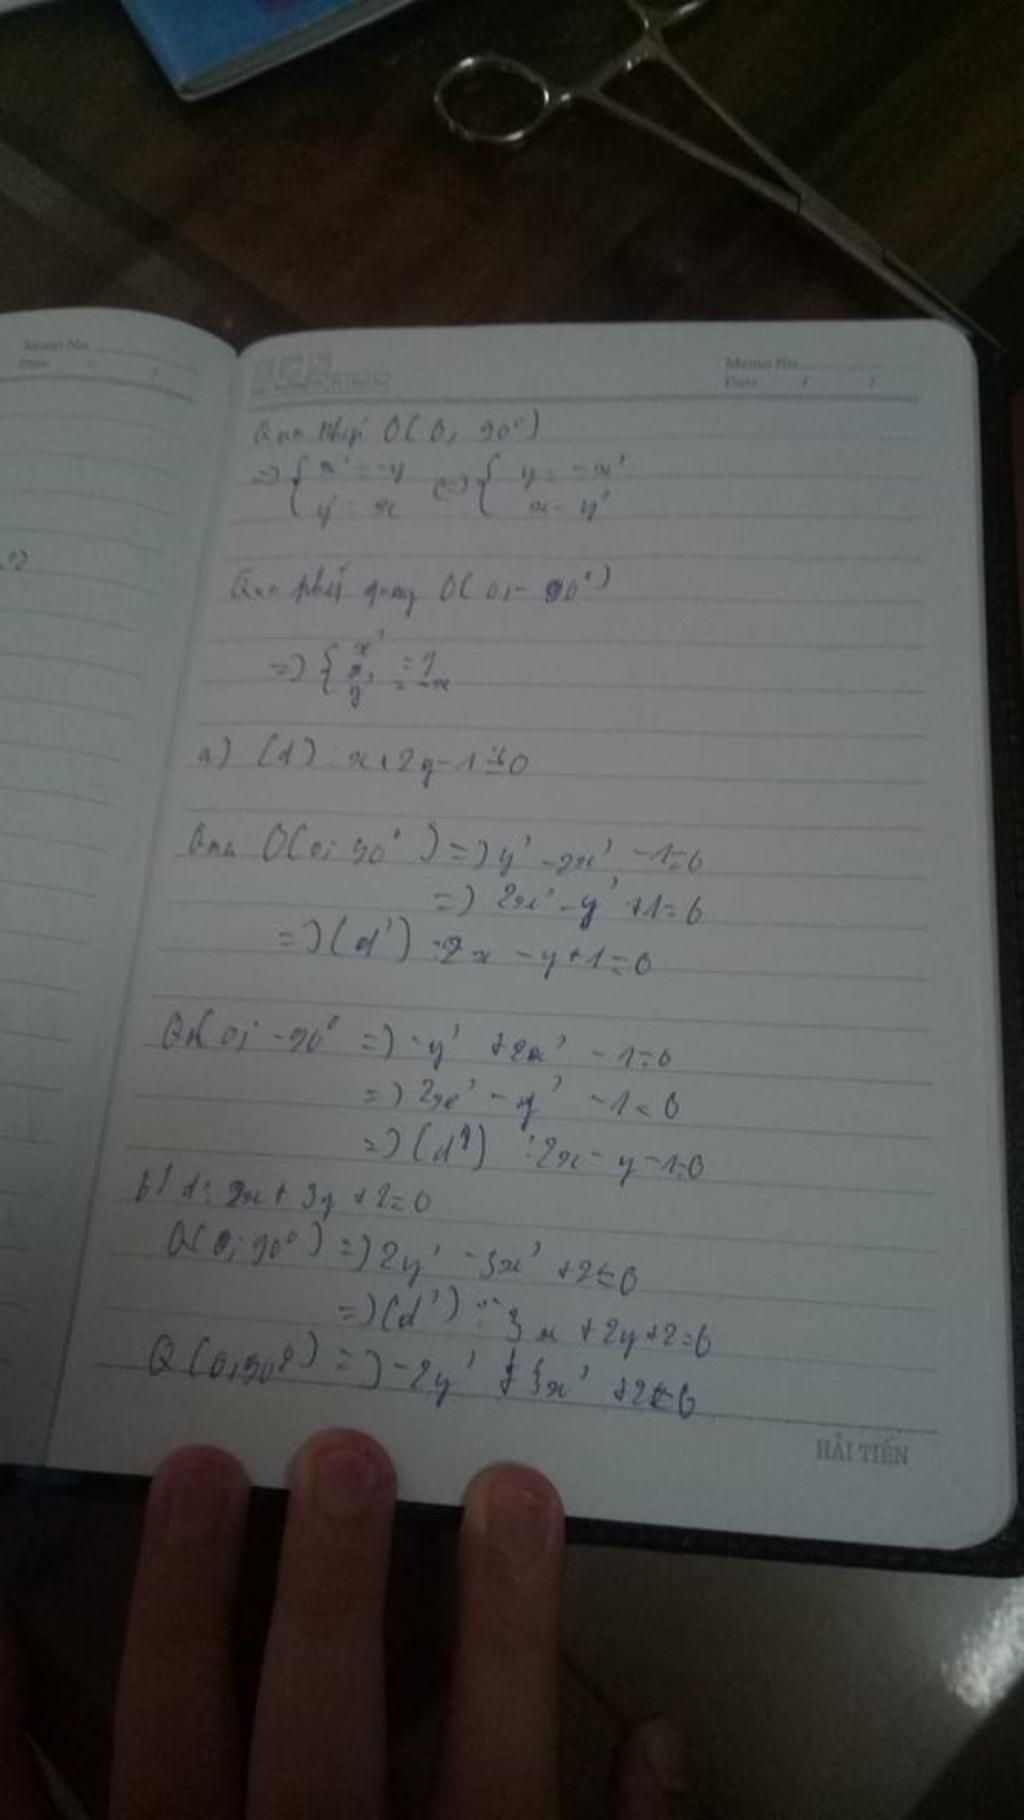 Memo No.
Date / /
Memo No.
Date / /
Qua phép O(O, 90°)
=> { x' = -y <=> { y = -x'
y' = x x = y'
Qua phép quay O(O, - 90°)
=> { x' = y
y' = -x
a) (d) : x + 2y - 1 = 0
Qua O(O; 90°) => y' - 2x' - 1 = 0
=> 2x' - y' + 1 = 0
=> (d') : 2x - y + 1 = 0
O; -90° => -y' + 2x' - 1 = 0
=> 2x' - y' - 1 = 0
=> (d') : 2x - y - 1 = 0
b/ d: 2x + 3y + 2 = 0
Q(O; 90°) => 2y' - 3x' + 2 = 0
=> (d') : -3x + 2y + 2 = 0
Q(O, 90°) => -2y' + 3x' + 2 = 0
HẢI TIẾN